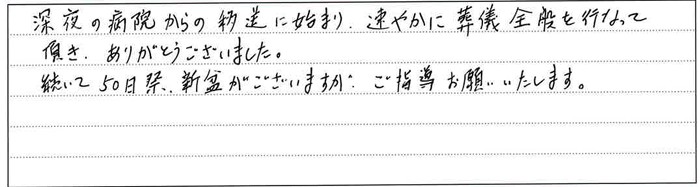 深夜の病院からの移送に始まり、速やかに葬儀全般を行なって
頂き、ありがとうございました。
続いて50日祭、新盆がございますが、ご指導お願いいたします。